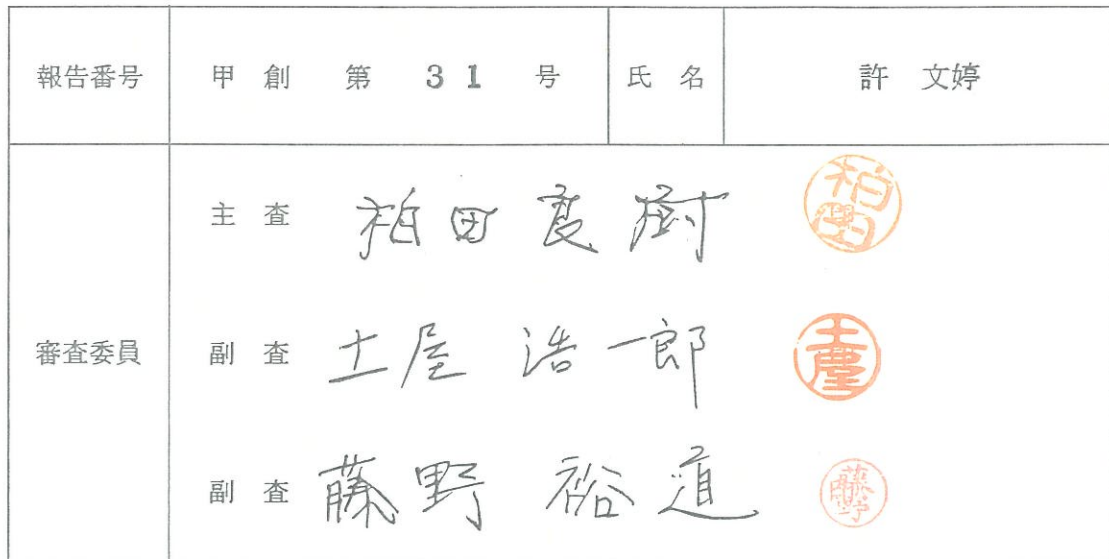 報告番号 甲 創 第 31 号 氏 名 許 文婷
主 査 柏田良樹 柏田
審査委員 副 査 土屋 浩一郎 土屋
副 査 藤野 裕道 藤野